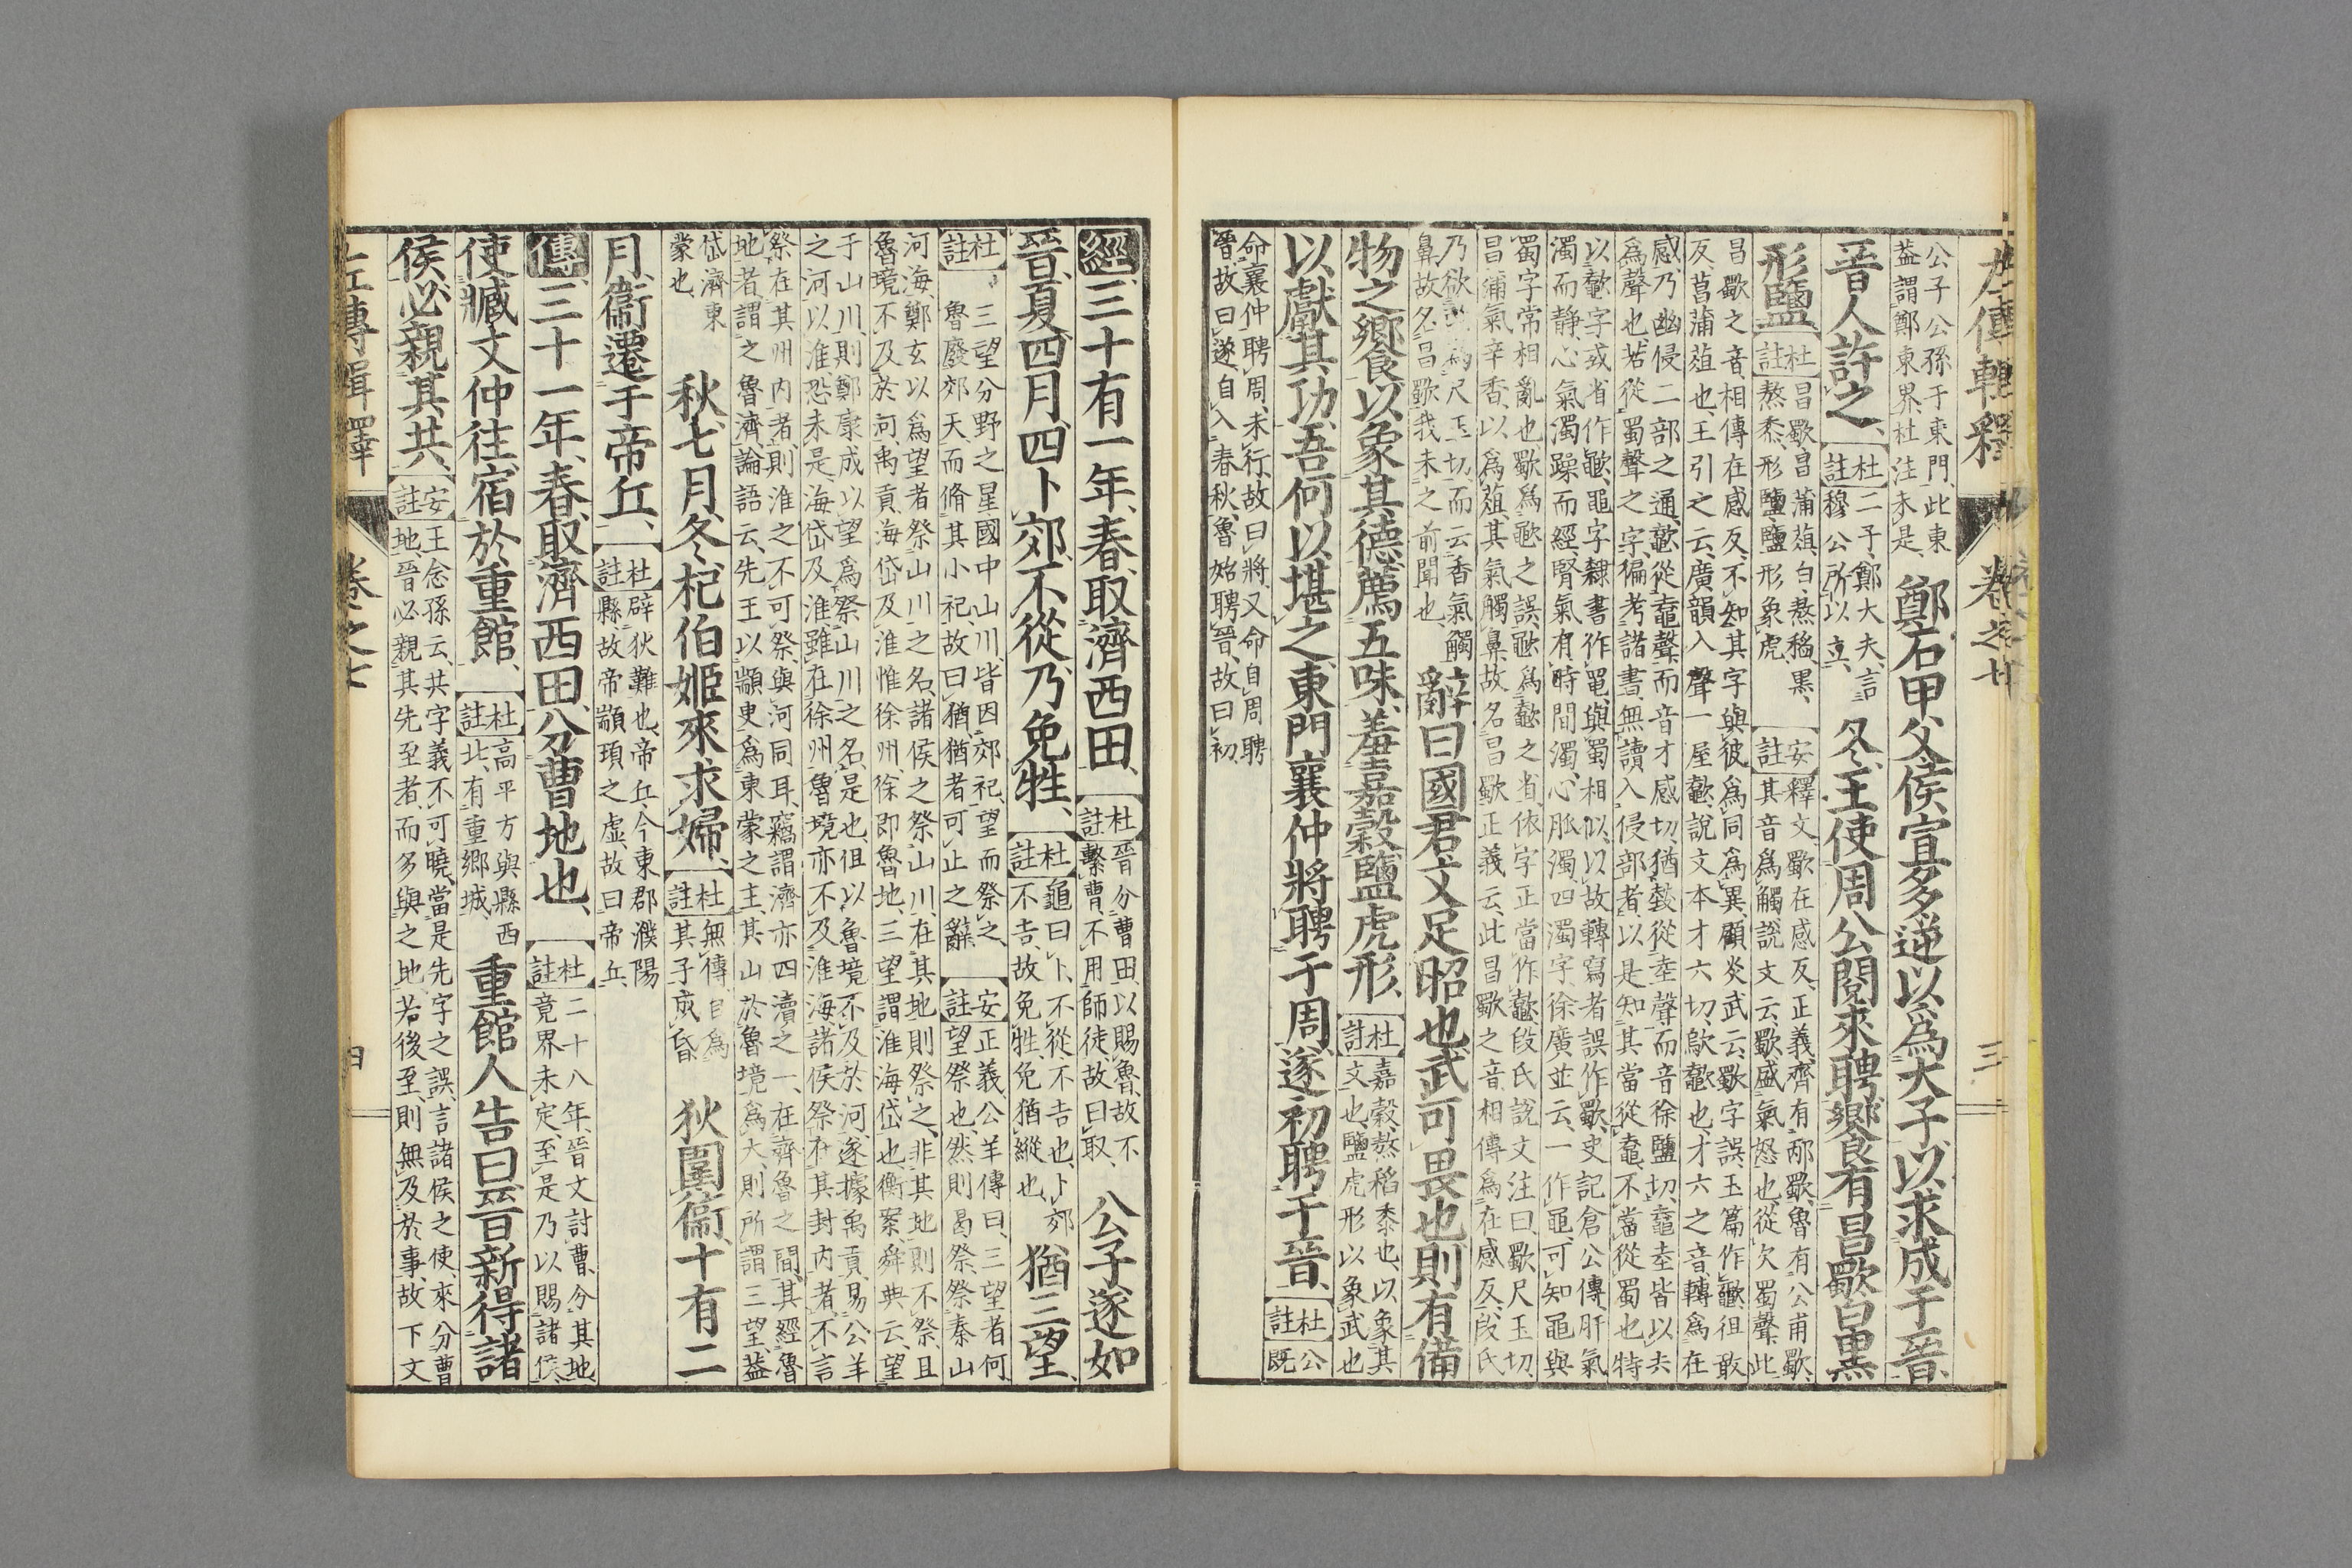 左傳輯釋 卷之七 三
公子公孫于東門此東
蓋謂鄭東界杜注未是
鄭石甲父侯宣多逆以爲大子以求成于晉
晉人許之
杜註 二子鄭大夫言
穆公所以立
冬王使周公閱來聘饗有昌歜白黑
形鹽
杜註 昌歜昌蒲葅白熬稻黑
熬黍形鹽鹽形象虎
安註 釋文歜在感反正義齊有邴歜魯有公甫歜
其音爲觸說文云歜盛氣怒也從欠蜀聲此
昌歜之音相傳在感反不知其字與彼爲同爲異顧炎武云歜字誤玉篇作徂敢
反菖蒲葅也王引之云廣韻入聲一屋說文本才六切歍也才六之音轉爲在
感乃幽侵二部之通從鼀聲而音才感切猶從坴聲而音徐鹽切鼀坴皆以圥
爲聲也若從蜀聲之字徧考諸書無讀入侵部者以是知其當從鼀不當從蜀也特
以字或省作黽字隸書作黽與蜀相似以故轉寫者誤作歜史記倉公傳肝氣
濁而靜心氣濁躁而經腎氣有時間濁心脈濁四濁字徐廣並云一作黽可知黽與
蜀字常相亂也歜爲之誤爲之省依字正當作段氏說文注曰歜尺玉切
昌蒲氣辛香以爲葅其氣觸鼻故名昌歜正義云此昌歜之音相傳爲在感反段氏
乃欲讀爲尺玉切而云香氣觸
鼻故名昌歜我未之前聞也
辭曰國君文足昭也武可畏也則有備
物之饗以象其德薦五味羞嘉穀鹽虎形
杜註 嘉穀熬稻黍也以象其
文也鹽虎形以象武也
以獻其功吾何以堪之東門襄仲將聘于周遂初聘于晉
杜註 公
既
命襄仲聘周未行故曰將又命自周聘
晉故曰遂自入春秋魯始聘晉故曰初
經三十有一年春取濟西田
杜註 晉分曹田以賜魯故不
繫曹不用師徒故曰取
公子遂如
晉夏四月四卜郊不從乃免牲
杜註 龜曰卜不從不吉也卜郊
不吉故免牲免猶縱也
猶三望
杜註 三望分野之星國中山川皆因郊祀望而祭之
魯廢郊天而脩其小祀故曰猶猶者可止之辭
安註 正義公羊傳曰三望者何
望祭也然則曷祭祭泰山
河海鄭玄以爲望者祭山川之名諸侯之祭山川在其地則祭之非其地則不祭且
魯境不及於河禹貢海岱及淮惟徐州徐即魯地三望謂淮海岱也衡案舜典云望
于山川則鄭康成以望爲祭山川之名是也但以魯境不及於河遂據禹貢易公羊
之河以淮恐未是海岱及淮雖在徐州魯境亦不及淮海諸侯祭在其封内者不言
祭在其州内者則淮之不可祭與河同耳竊謂濟亦四瀆之一在齊魯之間其經魯
地者謂之魯濟論語云先王以顓臾爲東蒙之主其山於魯境爲大則所謂三望蓋
岱濟東
蒙也
秋七月冬杞伯姬來求婦
杜註 無傳自爲
其子成昏
狄圍衛十有二
月衛遷于帝丘
杜註 辟狄難也帝丘今東郡濮陽
縣故帝顓頊之虛故曰帝丘
傳三十一年春取濟西田分曹地也
杜註 二十八年晉文討曹分其地
竟界未定至是乃以賜諸侯
使臧文仲往宿於重館
杜註 高平方與縣西
北有重鄉城
重館人告曰晉新得諸
侯必親其共
安註 王念孫云共字義不可曉當是先字之誤言諸侯之使來分曹
地晉必親其先至者而多與之地若後至則無及於事故下文
左傳輯釋 卷之七 四